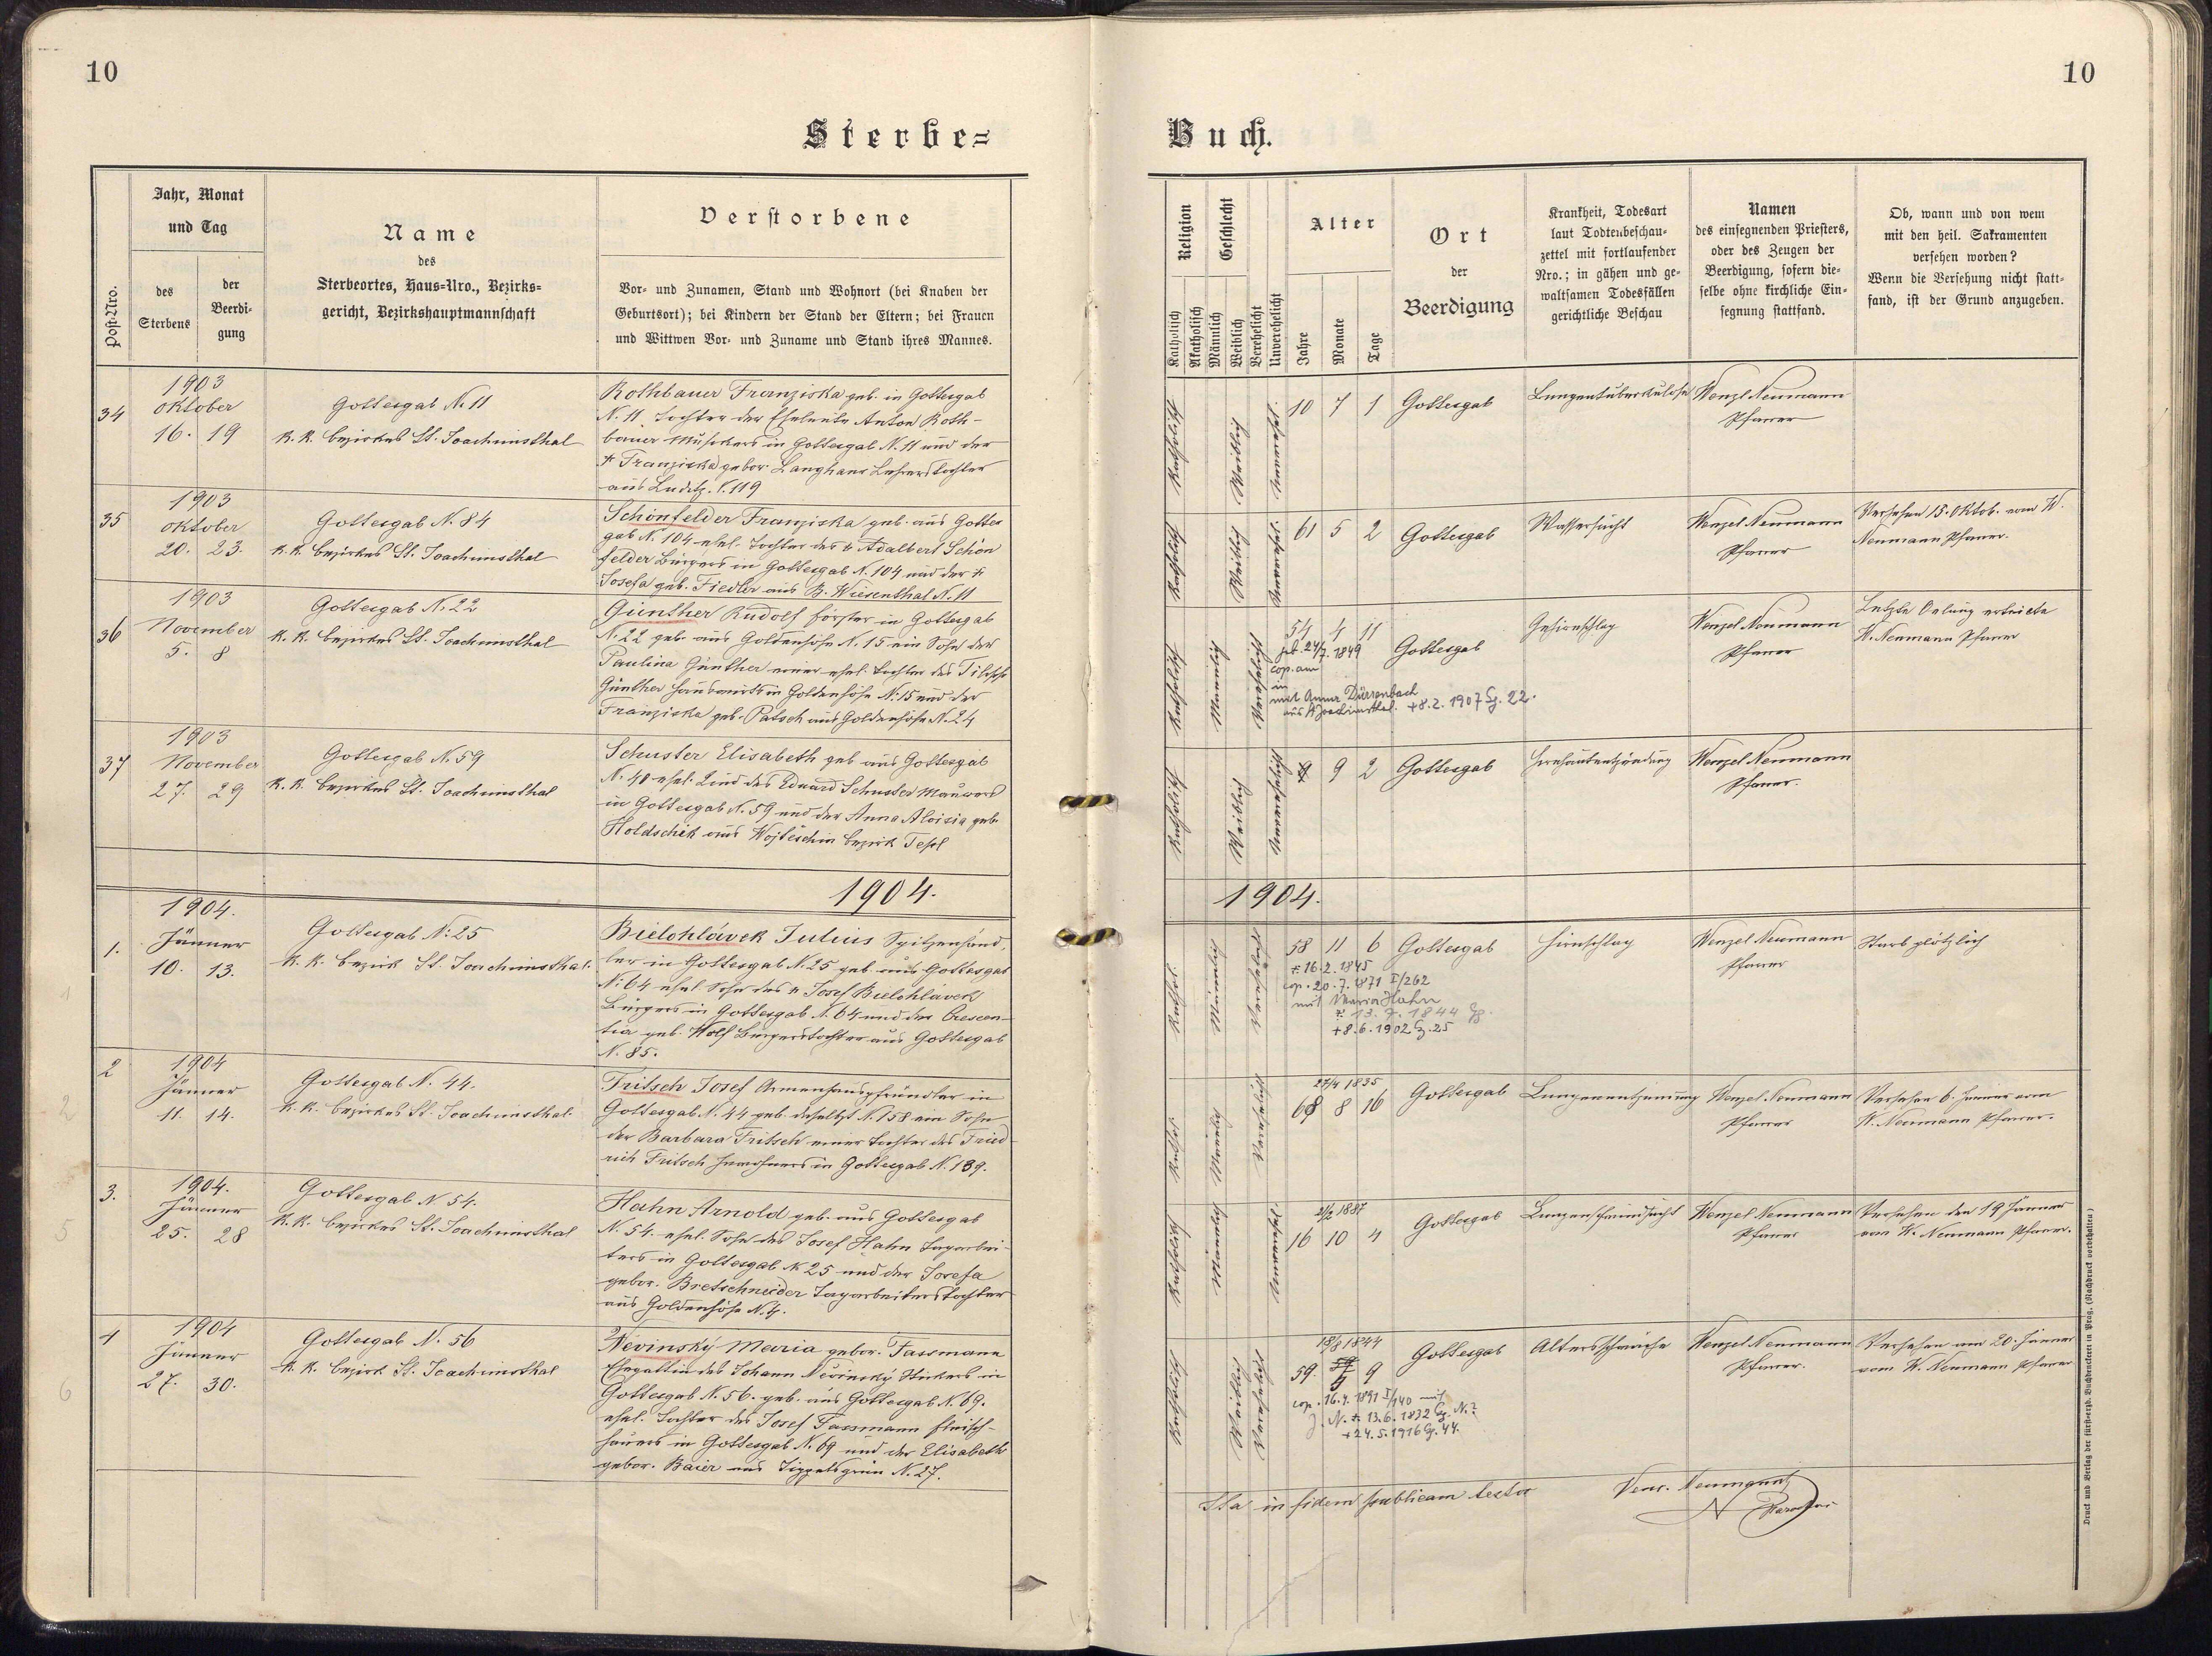 10
Sterbe=
Jahr, Monat
und Tag
Post=Nro.
des
Sterbens
der
Beerdi=
gung
Name
des
Sterbeortes, Haus=Nro., Bezirks=
gericht, Bezirkshauptmannschaft
Verstorbene
Vor= und Zunamen, Stand und Wohnort (bei Knaben der
Geburtsort); bei Kindern der Stand der Eltern; bei Frauen
und Wittwen Vor= und Zuname und Stand ihres Mannes.
34
1903
Oktober
16. 19
Gottesgab N. 11
k. k. Bezirkes St. Joachimsthal
Rothbauer Franziska geb. in Gottesgab
N. 11. Tochter der Eheleute Anton Roth-
bauer Musikers in Gottesgab N. 11 und der
Franziska gebor. Langhans Lehrerstochter
aus Luditz N. 119
35
1903
Oktober
20. 23.
Gottesgab N. 84
k. k. Bezirkes St. Joachimsthal
Schönfelder Franziska geb. aus Gottes
gab N. 104 ehel. Tochter des + Adalbert Schön
felder Bürgers in Gottesgab N. 104 und der +
Josefa geb. Fiedler aus B. Wiesenthal N. 11
36
1903
November
5. 8
Gottesgab N. 22
k. k. Bezirkes St. Joachimsthal
Günther Rudolf Förster in Gottesgab
N. 22 geb. aus Goldenhöhe N. 15 ein Sohn der
Paulina Günther einer ehel. Tochter des
Günther Hausbesitzers in Goldenhöhe N. 15 und der
Franziska geb. Patsch aus Goldenhöhe N. 24
37
1903
November
27. 29
Gottesgab N. 59
k. k. Bezirkes St. Joachimsthal
Schuster Elisabeth geb. aus Gottesgab
N. 48 ehel. Kind des Eduard Schuster Maurers
in Gottesgab N. 59 und der Anna Aloisia geb.
Holdschik aus Wojteschin Bezirk Tepl
1904.
1.
1904.
Jänner
10. 13.
Gottesgab N. 25
k. k. Bezirk St. Joachimsthal.
Bielohlávek Julius Spitzenhänd-
ler in Gottesgab N. 25 geb. aus Gottesgab
N. 64 ehel. Sohn des + Josef Bielohlávek
Bürgers in Gottesgab N. 64 und der Crescen-
tia geb. Wolf Bürgerstochter aus Gottesgab
N. 85.
1
2
1904
Jänner
11. 14.
Gottesgab N. 44.
k. k. Bezirkes St. Joachimsthal.
Fritsch Josef Armenhauspfründler in
Gottesgab N. 44 geb. daselbst N. 158 ein Sohn
der Barbara Fritsch einer Tochter des Fried-
rich Fritsch Inwohners in Gottesgab N. 139.
2
3.
1904.
Jänner
25. 28
Gottesgab N. 54.
k. k. Bezirkes St. Joachimsthal
Hahn Arnold geb. aus Gottesgab
N. 54. ehel. Sohn des Josef Hahn Tagarbei-
ters in Gottesgab N. 25 und der Josefa
gebor. Bretschneider Tagarbeiterstochter
aus Goldenhöhe N. 4.
5
4
1904
Jänner
27. 30.
Gottesgab N. 56
k. k. Bezirk St. Joachimsthal
Nevinský Maria gebor. Fassmann
Ehegattin des Johann Nevinský in
Gottesgab N. 56. geb. aus Gottesgab N. 69.
ehel. Tochter des Josef Fassmann Fleisch-
hauers in Gottesgab N. 69 und der Elisabeth
gebor. Baier aus Tippelsgrün N. 27.
6
10
Buch.
Religion
Katholisch
Akatholisch
Geschlecht
Männlich
Weiblich
Verehelicht
Unverehelicht
Alter
Jahre
Monate
Tage
Ort
der
Beerdigung
Krankheit, Todesart
laut Todtenbeschau=
zettel mit fortlaufender
Nro.; in gähen und ge=
waltsamen Todesfällen
gerichtliche Beschau
Namen
des einsegnenden Priesters,
oder des Zeugen der
Beerdigung, sofern die=
selbe ohne kirchliche Ein=
segnung stattfand.
Ob, wann und von wem
mit den heil. Sakramenten
versehen worden?
Wenn die Versehung nicht statt=
fand, ist der Grund anzugeben.
Katholisch
Weiblich
Unverehel.
10 7 1
Gottesgab
Lungentuberkulose
Wenzl Neumann
Pfarrer
Katholisch
Weiblich
Unverehel.
61 5 2
Gottesgab
Wassersucht
Wenzel Neumann
Pfarrer
Versehen 15. Oktob. vom W.
Neumann Pfarrer.
Katholisch
Männlich
Verehelicht
54 4 11
geb. 24/7. 1849
cop. am
in
mit Anna Dürrenbach
aus Joachimsthal. +8.2.1907 Gg. 22.
Gottesgab
Gehirnschlag
Wenzel Neumann
Pfarrer
Letzte Oelung erteilte
W. Neumann Pfarrer
Katholisch
Weiblich
Unverehelicht
9 2
Gottesgab
Hirnhautentzündung
Wenzel Neumann
Pfarrer.
1904.
Kathol.
Männlich
Verehelicht
58 11 6
+ 16.2.1845
cop. 20.7.1871 I/262
mit Maria Hahn
* 13.7.1844 Gg.
+8.6.1902 Gg. 25
Gottesgab
Hirnschlag
Wenzel Neumann
Pfarrer
Starb plötzlich
Kathol.
Männlich
Verehelicht
27/4 1835
68 8 16
Gottesgab
Lungenentzündung
Wenzel Neumann
Pfarrer
Versehen 6. Jänner vom
W. Neumann Pfarrer.
Katholisch
Männlich
Unverehel.
21/2 1887
16 10 4
Gottesgab
Lungenschwindsucht
Wenzel Neumann
Pfarrer
Versehen den 19 Jänner
vom W. Neumann Pfarrer.
Katholisch
Weiblich
Verehelicht
18/8 1844
59. 5 9
cop. 16.4.1891 I/140 mit
J. N. * 13.6.1832 Gg. N.?
+24.5.1916 Gg. 44.
Gottesgab
Altersschwäche
Wenzel Neumann
Pfarrer.
Versehen am 20. Jänner
vom W. Neumann Pfarrer
Ita in fidem publicam testor
Venc. Neumann
Parochus
Druck und Verlag der fürst=erzb. Buchdruckerei in Prag. (Nachdruck vorbehalten.)